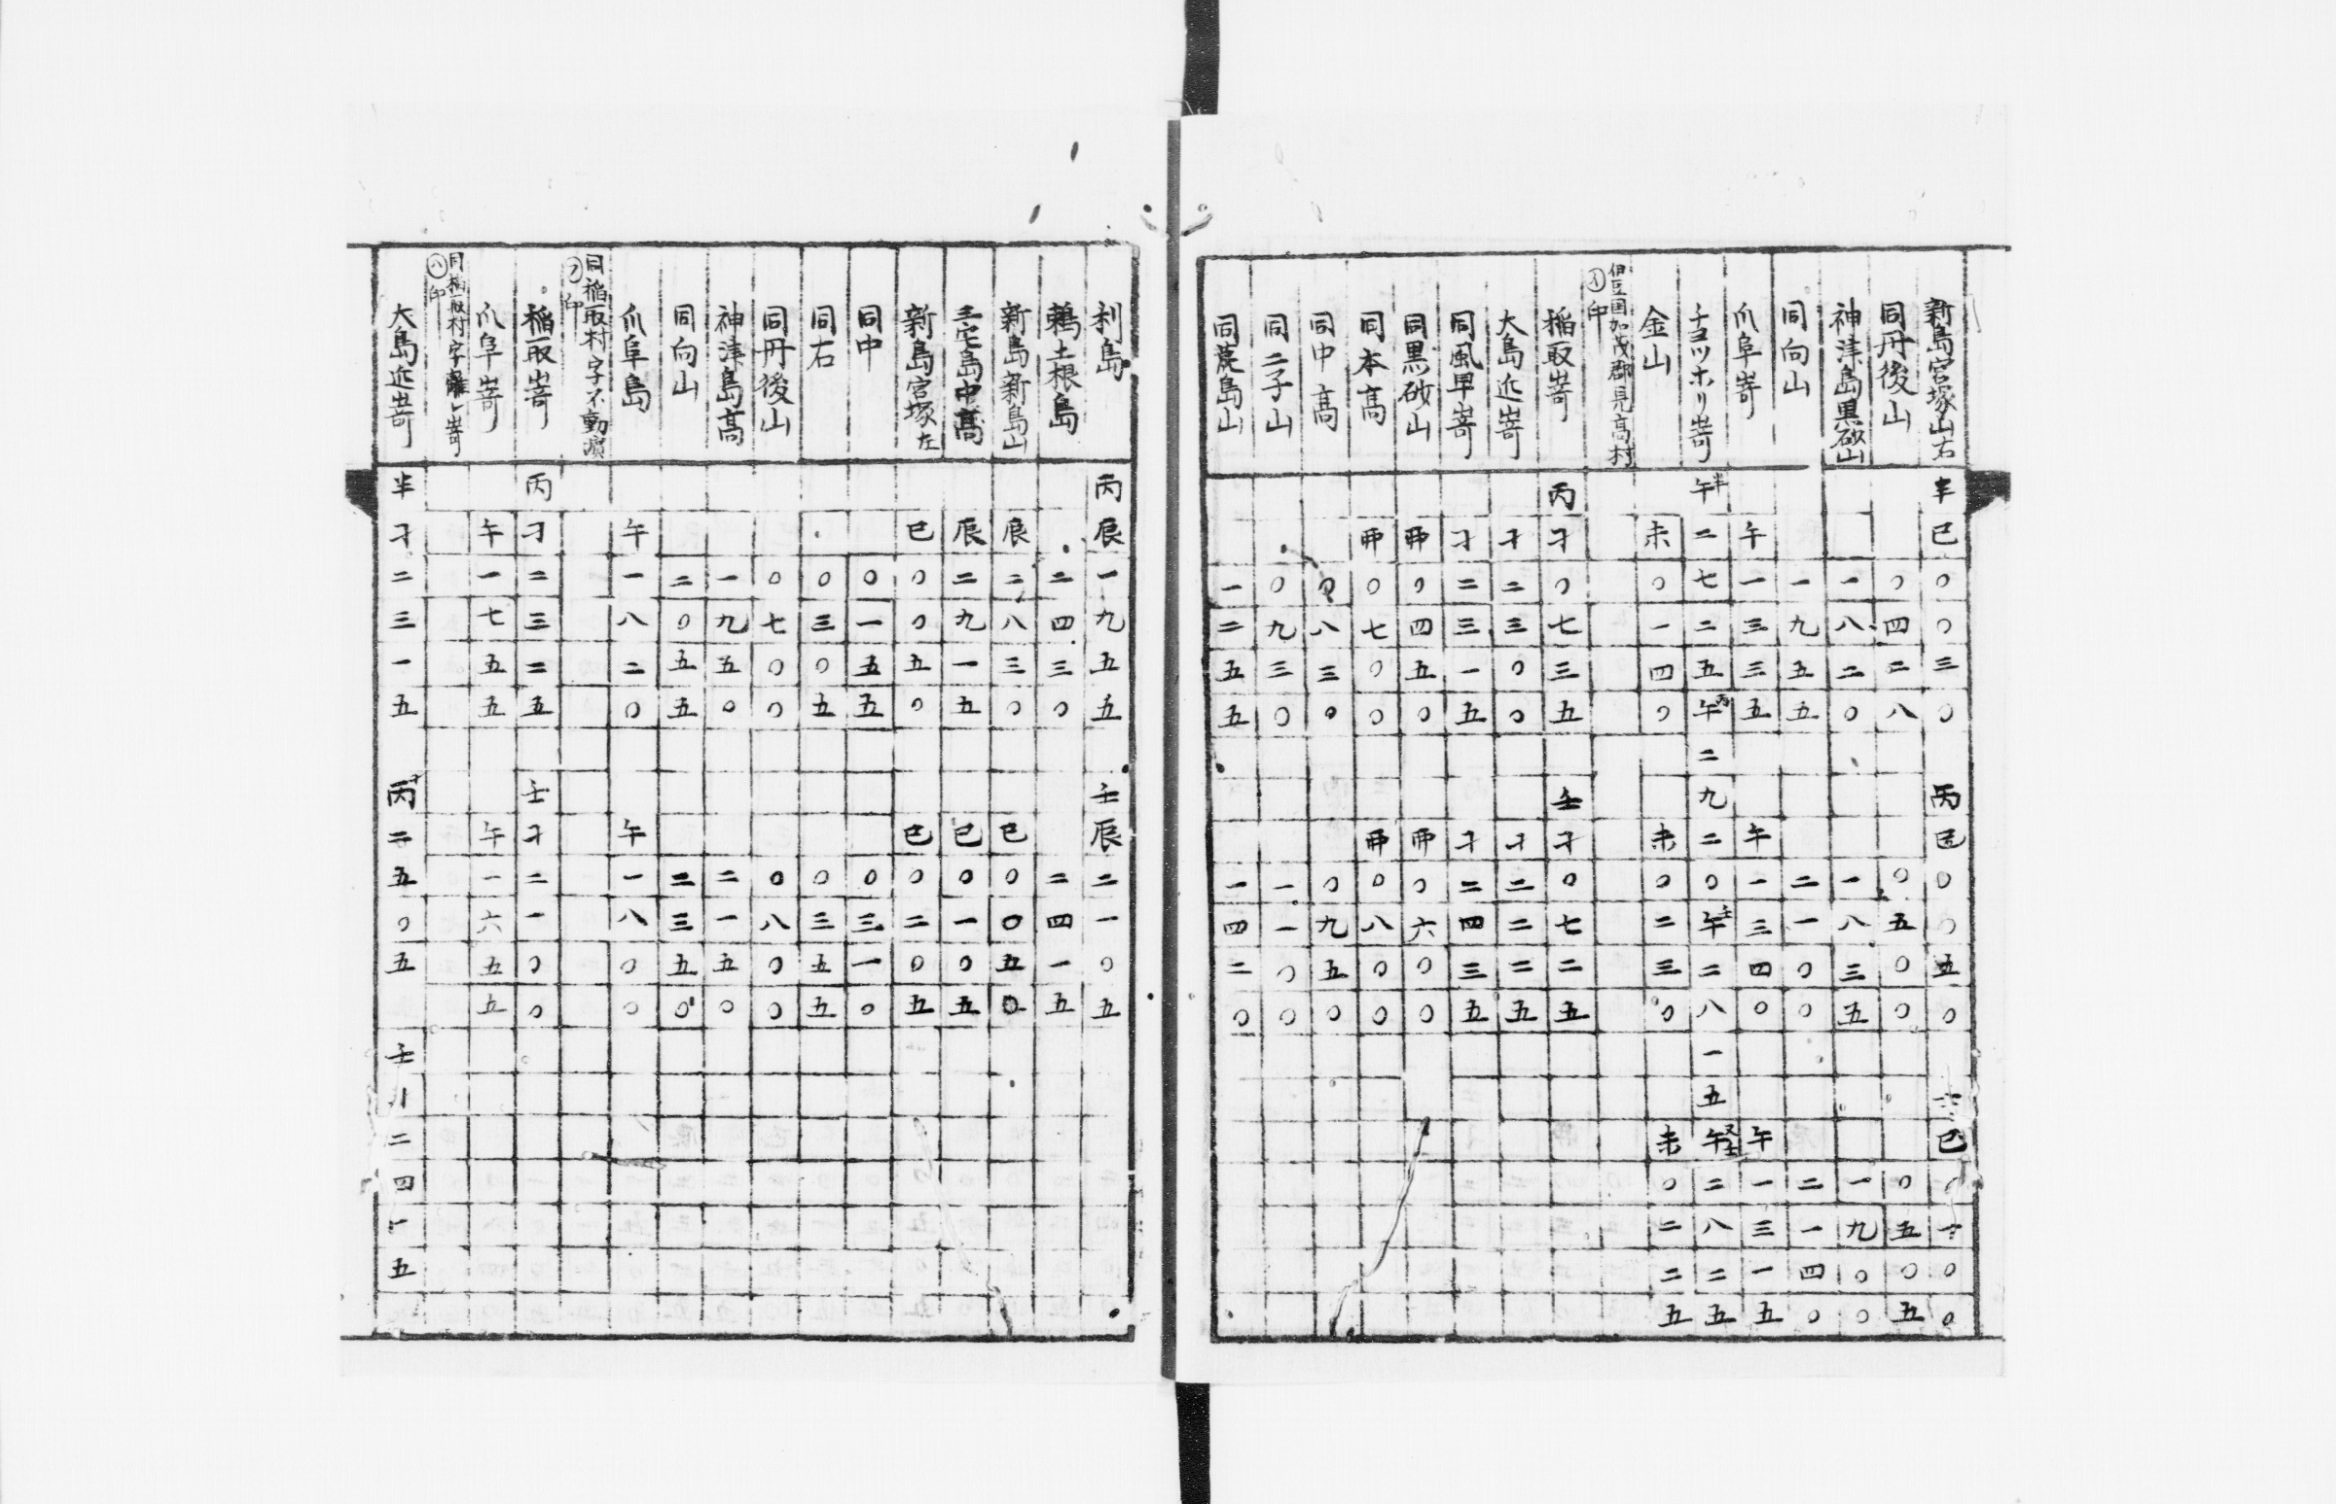 新島宮塚山右 半巳〇〇三〇 丙巳〇〇五〇 巳〇一〇〇
同丹後山 〇四二八 〇五〇〇 〇五〇五
神津島黒砂山 一八二〇 一八三五 一九〇〇
同向山 一九五五 二一〇〇 二一四〇
爪阜嵜 午一三三五 午一三四〇 午一三一五
チヨツホリ嵜 半午二七二五 丙午二九二〇 壬午二八一五 午二八二五
金山 未〇一四〇 未〇二三〇 未〇二二五
伊豆国加茂郡見高村 印
稲取嵜 丙子〇七三五 壬子〇七二五
大島近嵜 子二三〇〇 子二二二五
同風早嵜 子二三一五 子二四三五
同黒砂山 丣〇四五〇 丣〇六〇〇
同本高 丣〇七〇〇 丣〇八〇〇
同中高 〇八三〇 〇九五〇
同二子山 〇九三〇 一一〇〇
同荒島山 一二五五 一四二〇
利島 丙辰一九五五 壬辰二一〇五
鵜土根島 二四三〇 二四一五
新島新島山 辰二八三〇 巳〇〇五〇
三宅島中高 辰二九一五 巳〇一〇五
新島宮塚左 巳〇〇五〇 巳〇二〇五
同中 〇一五五 〇三一〇
同右 〇三〇五 〇三五五
同丹後山 〇七〇〇 〇八〇〇
神津島高 一九五〇 二一五〇
同向山 二〇五五 二三五〇
爪阜島 午一八二〇 午一八〇〇
同稲取村字不動濵 印
稲取嵜 丙子二三二五 壬子二一〇〇
爪阜嵜 午一七五五 午一六五五
同稲取村字離レ嵜 ㊇印
大島近嵜 半子二三一五 丙子二五〇五 壬子二四一五